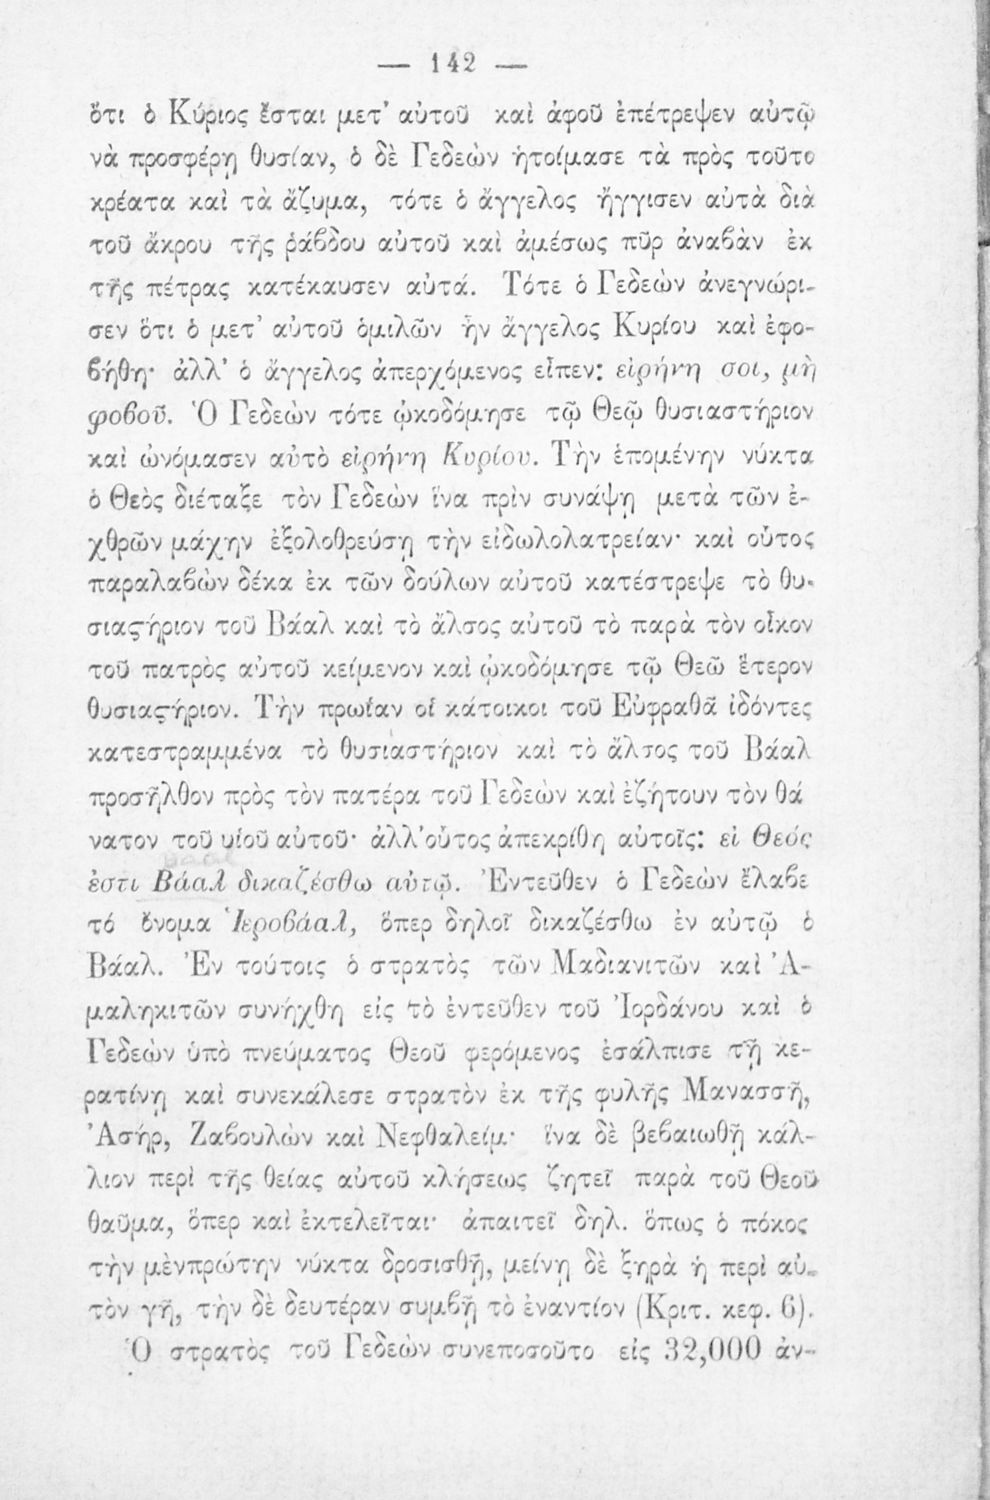 — 142 —
ὅτι ὁ Κύριος ἔσται μετ' αὐτοῦ καὶ ἀφοῦ ἐπέτρεψεν αὐτῷ
νὰ προσφέρῃ θυσίαν, ὁ δὲ Γεδεὼν ἡτοίμασε τὰ πρὸς τοῦτο
κρέατα καὶ τὰ ἄζυμα, τότε ὁ ἄγγελος ἤγγισεν αὐτὰ διὰ
τοῦ ἄκρου τῆς ῥάβδου αὐτοῦ καὶ ἀμέσως πῦρ ἀναβὰν ἐκ
τῆς πέτρας κατέκαυσεν αὐτά. Τότε ὁ Γεδεὼν ἀνεγνώρι-
σεν ὅτι ὁ μετ' αὐτοῦ ὁμιλῶν ἦν ἄγγελος Κυρίου καὶ ἐφο-
βήθη· ἀλλ' ὁ ἄγγελος ἀπερχόμενος εἶπεν: εἰρήνη σοι, μὴ
φοβοῦ. Ὁ Γεδεὼν τότε ᾠκοδόμησε τῷ Θεῷ θυσιαστήριον
καὶ ὠνόμασεν αὐτὸ εἰρήνη Κυρίου. Τὴν ἑπομένην νύκτα
ὁ Θεὸς διέταξε τὸν Γεδεὼν ἵνα πρὶν συνάψῃ μετὰ τῶν ἐ-
χθρῶν μάχην ἐξολοθρεύσῃ τὴν εἰδωλολατρείαν· καὶ οὗτος
παραλαβὼν δέκα ἐκ τῶν δούλων αὐτοῦ κατέστρεψε τὸ θυ-
σιαϛήριον τοῦ Βάαλ καὶ τὸ ἄλσος αὐτοῦ τὸ παρὰ τὸν οἶκον
τοῦ πατρὸς αὐτοῦ κείμενον καὶ ᾠκοδόμησε τῷ Θεῶ ἕτερον
θυσιαϛήριον. Τὴν πρωΐαν οἱ κάτοικοι τοῦ Εὐφραθᾶ ἰδόντες
κατεστραμμένα τὸ θυσιαστήριον καὶ τὸ ἄλσος τοῦ Βάαλ
προσῆλθον πρὸς τὸν πατέρα τοῦ Γεδεὼν καὶ ἐζήτουν τὸν θά
νατον τοῦ υἱοῦ αὐτοῦ· ἀλλ' οὗτος ἀπεκρίθη αὐτοῖς: εἰ Θεός
ἐστι Βάαλ δικαζέσθω αὐτῷ. Ἐντεῦθεν ὁ Γεδεὼν ἔλαβε
τό ὄνομα Ἱεροβάαλ, ὅπερ δηλοῖ δικαζέσθω ἐν αὐτῷ ὁ
Βάαλ. Ἐν τούτοις ὁ στρατὸς τῶν Μαδιανιτῶν καὶ Ἀ-
μαληκιτῶν συνήχθη εἰς τὸ ἐντεῦθεν τοῦ Ἰορδάνου καὶ ὁ
Γεδεὼν ὑπὸ πνεύματος Θεοῦ φερόμενος ἐσάλπισε τῇ κε-
ρατίνῃ καὶ συνεκάλεσε στρατὸν ἐκ τῆς φυλῆς Μανασσῆ,
Ἀσήρ, Ζαβουλὼν καὶ Νεφθαλείμ· ἵνα δὲ βεβαιωθῇ κάλ-
λιον περὶ τῆς θείας αὐτοῦ κλήσεως ζητεῖ παρὰ τοῦ Θεοῦ
θαῦμα, ὅπερ καὶ ἐκτελεῖται· ἀπαιτεῖ δηλ. ὅπως ὁ πόκος
τὴν μὲν πρώτην νύκτα δροσισθῇ, μείνῃ δὲ ξηρὰ ἡ περὶ αὐ-
τὸν γῆ, τὴν δὲ δευτέραν συμβῇ τὸ ἐναντίον (Κριτ. κεφ. 6).
Ὁ στρατὸς τοῦ Γεδεὼν συνεποσοῦτο εἰς 32,000 ἀν-